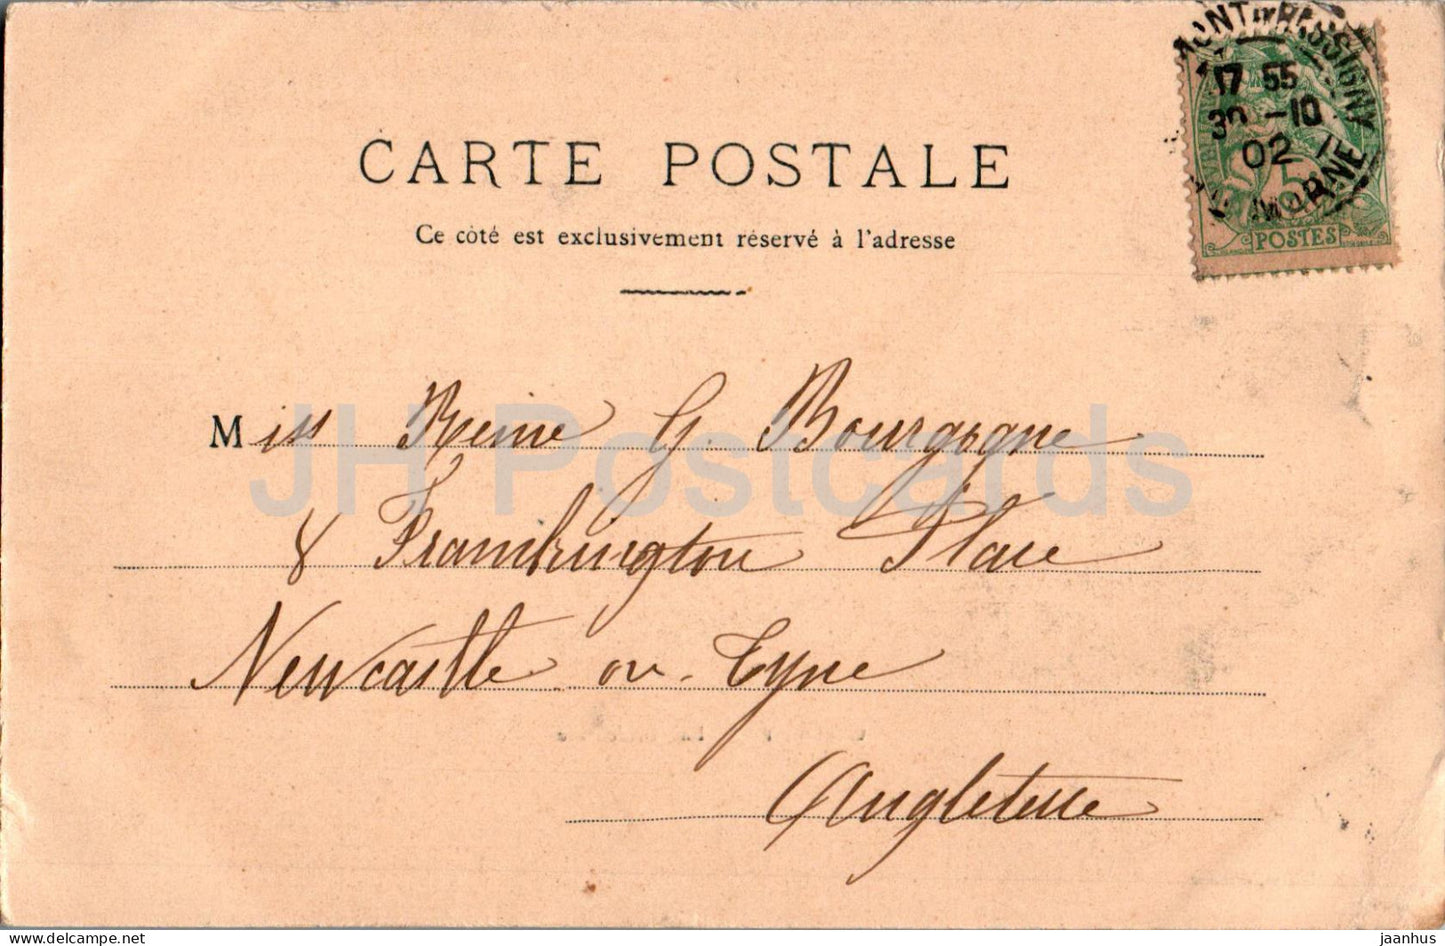 CARTE POSTALE
Ce côté est exclusivement réservé à l'adresse
Miss Reine G. Bourgogne
8 Framlington Place
Newcastle on Tyne
Angleterre
17 55
30 -10
02
MARNE
5
POSTES
JH Postcards
delcampe.net
jaanhus